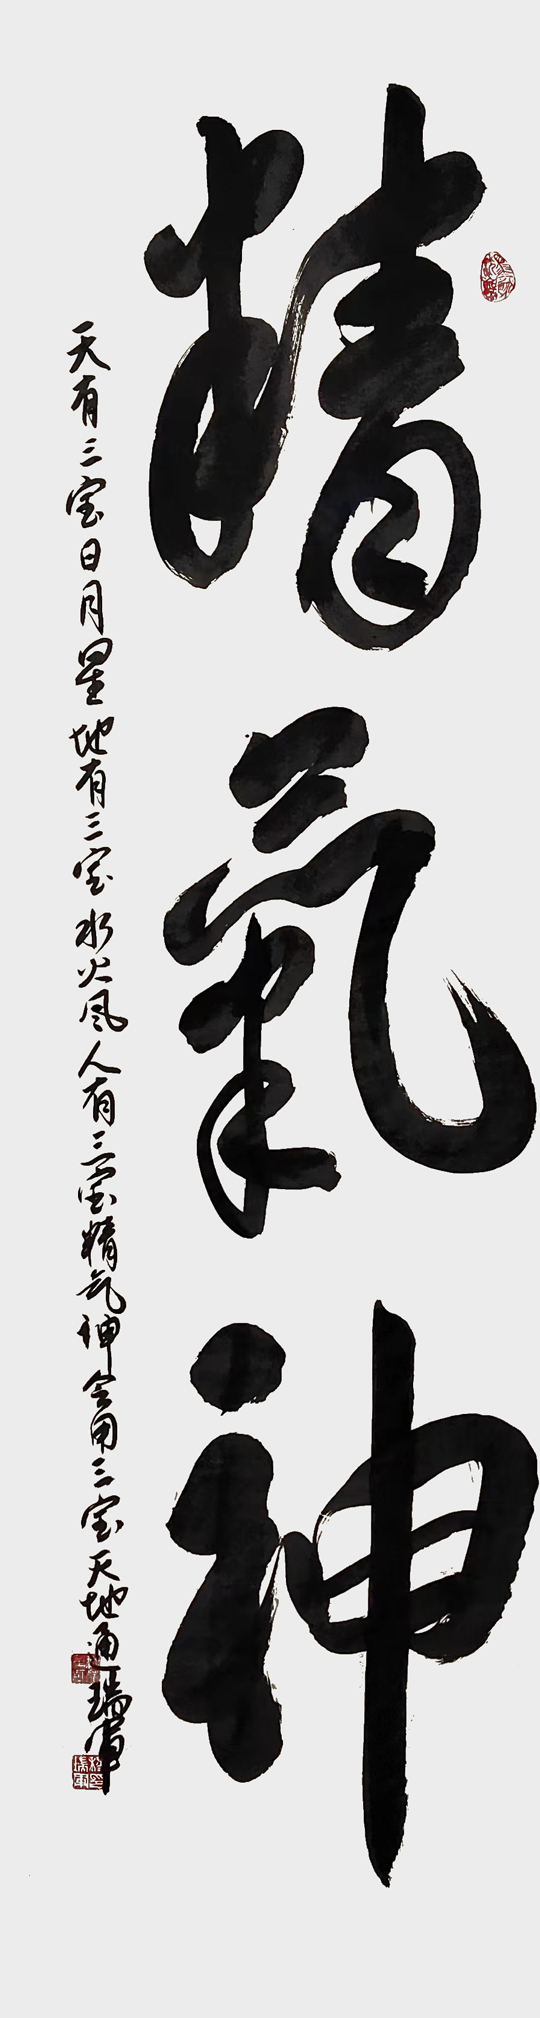 精氣神
天有三宝日月星地有三宝水火风人有三宝精气神会用三宝天地通瑞军